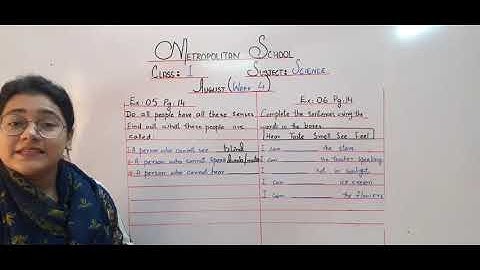 Metropolitan School
Class: I Subject: Science
August (Week 4)
Ex. 05 Pg. 14
Do all people have all these senses
Find out what these people are
called.
1. A person who cannot see blind
2. A person who cannot speak dumb/mute
3. A person who cannot hear
Ex. 06 Pg. 14
Complete the sentences using the
words in the boxes
Hear Taste Smell See Feel
I can the stars
I can the teacher speaking
I hot in sunlight
I can ice cream
I can the flowers